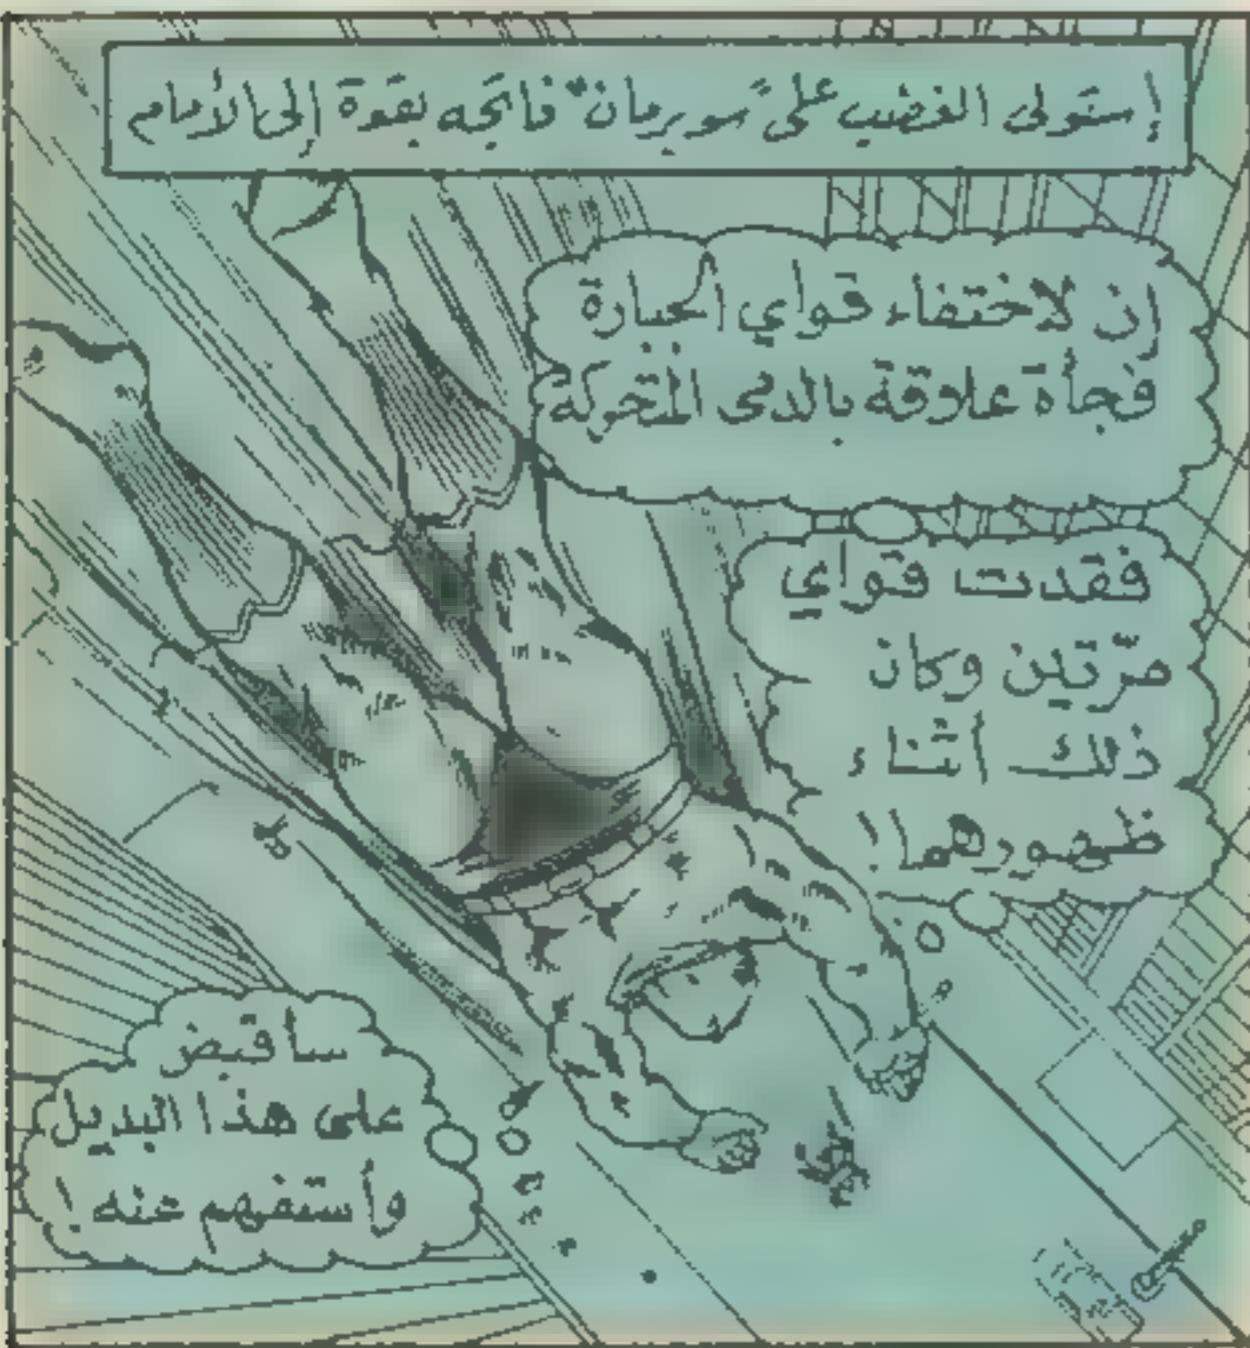 إستولى الغضب على "سوبرمان" فاتجه بقوة إلى الأمام
إن لاختفاء قواي الجبارة
فجأة علاوقة بالدمى المتحركة
فقدت قواي
مرّتين وكان
ذلك اثناء
ظهورهما!
سأقبض
على هذا البديل
وأستفهم منه!